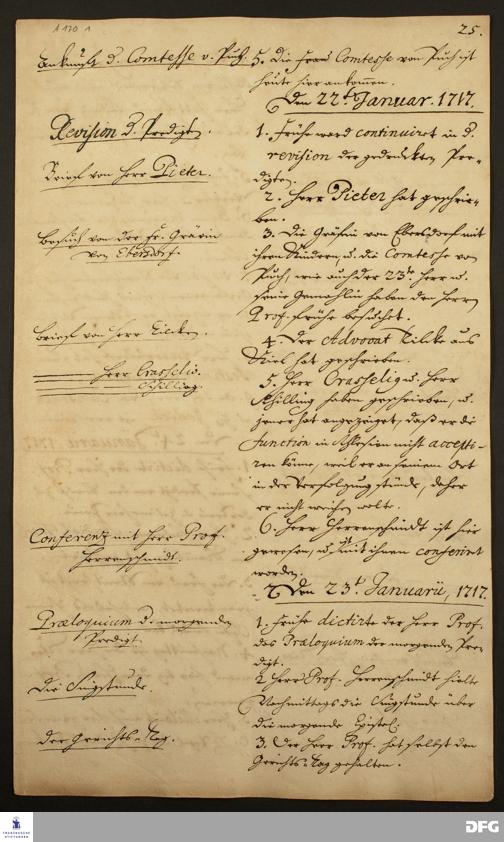 A 170 1
25.
Ankunft d. Comtesse v. Puch.
5. Die Frau Comtesse von Puch ist
heute hier ankommen.
Den 22.t Januar. 1717.
Revision d. Predigten.
1. Frühe ward continuiret in d.
revision der gedruckten Pre-
digten.
Brief von Herr Pieter.
2. Herr Pieter hat geschrie-
ben.
Besuch von der Fr. Gräfin
von Ebersdorf.
3. Die Gräfin von Ebersdorf mit
ihren Kindern, u. die Comtesse von
Puch, wie auch der 23te Herr u.
seine Gemahlin haben den Herrn
Prof. frühe besuchet.
Brief von Herr Tilcken.
4. Der Advocat Tilcke aus
Kiel hat geschrieben.
Herr Crasselio.
Schilling.
5. Herr Crasselig u. Herr
Schilling haben geschrieben, u.
jener hat angezeiget, daß er die
function in Schlesien nicht accepti-
ren könne, weil er an seinem Ort
in der Verfolgung stünde, daher
er nicht weichen wolte.
Conferenz mit Herr Prof.
Herrenschmidt.
6. Herr Herrenschmidt ist hier
gewesen, u. mit ihnen conferirt
worden.
Den 23.t Januarii, 1717.
Præloquium d. morgenden
Predigt.
1. Frühe dictirte der Herr Prof.
das Præloquium der morgenden Pre-
digt.
Die Singstunde.
2. Herr Prof. Herrenschmidt hielte
Nachmittags die Singstunde über
die morgende Epistel.
Der Gerichts-Tag.
3. Der Herr Prof. hat selbst den
Gerichts-Tag gehalten.
FRANCKESCHE
STIFTUNGEN
DFG